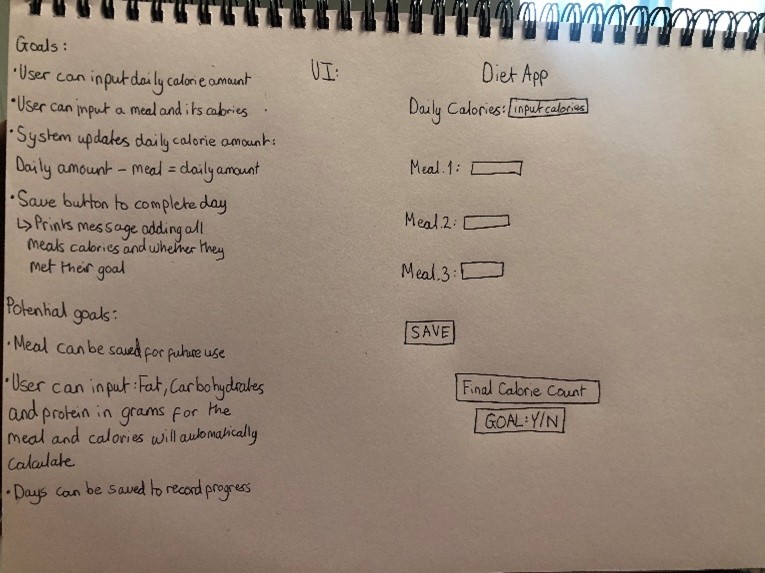 Goals:
• User can input daily calorie amount
• User can input a meal and its calories
• System updates daily calorie amount:
Daily amount - meal = daily amount
• Save button to complete day
↳ Prints message adding all
meals calories and whether they
met their goal
Potential goals:
• Meal can be saved for future use
• User can input: Fat, Carbohydrates
and protein in grams for the
meal and calories will automatically
calculate
• Days can be saved to record progress
UI:
Diet App
Daily Calories: input calories
Meal.1:
Meal.2:
Meal.3:
SAVE
Final Calorie Count
GOAL: Y/N